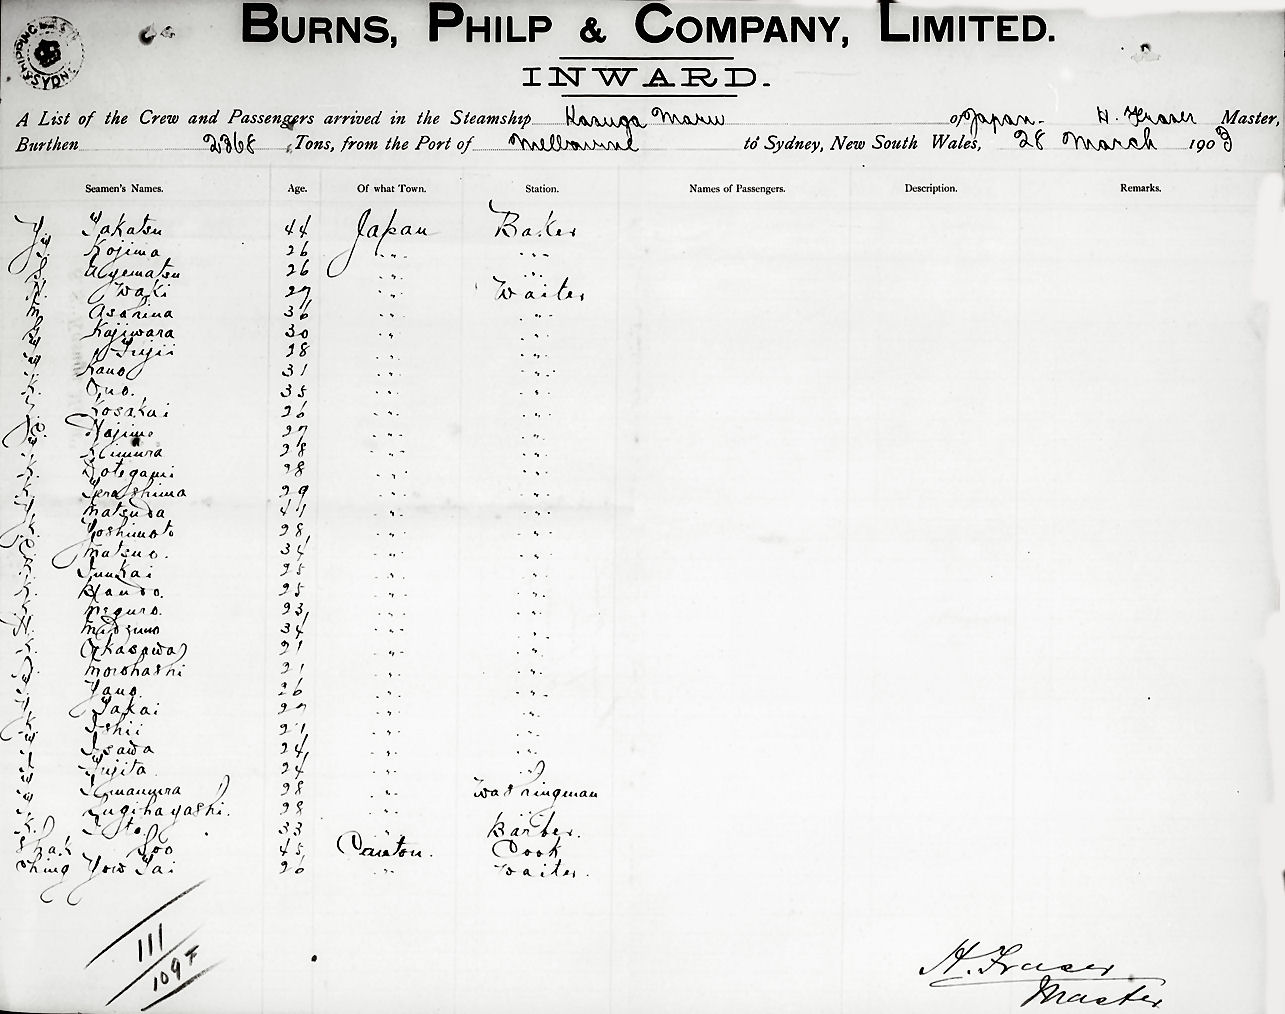 SHIPPING MASTER SYDNEY
BURNS, PHILP & COMPANY, LIMITED.
INWARD.
A List of the Crew and Passengers arrived in the Steamship Kasuga Maru of Japan. H. Fraser Master,
Burthen 2368 Tons, from the Port of Melbourne to Sydney, New South Wales, 28 March 1903
Seamen's Names. Age. Of what Town. Station. Names of Passengers. Description. Remarks.
Takatsu 44 Japan Baker
Kojima 26 " "
S. Uyematsu 26 " "
H. Waki 27 " Waiter
M. Asahina 36 " "
Kajiwara 30 " "
Fujii 28 " "
Kano 31 " "
K. Ono. 35 " "
Kosakai 26 " "
Hajime 27 " "
Kimura 28 " "
K. Kotegami 28 " "
K. Terashima 29 " "
Matsuda 41 " "
K. Yoshimoto 28 " "
Matsuo. 34 " "
25 " "
K. Bando. 25 " "
Meguro. 23 " "
H. Midzuno 34 " "
K. 21 " "
Morohashi 21 " "
Yano. 26 " "
Takai 27 " "
K. Ishii 21 " "
Isawa 24 " "
Fujita 24 " "
Imamura 28 " Washingman
Sugihayashi. 28 " "
K. Ito. 33 " Barber.
Shak Soo 45 Canton. Cook
Ching Yow Tai 26 " Waiter.
111
109 F
H. Fraser
Master